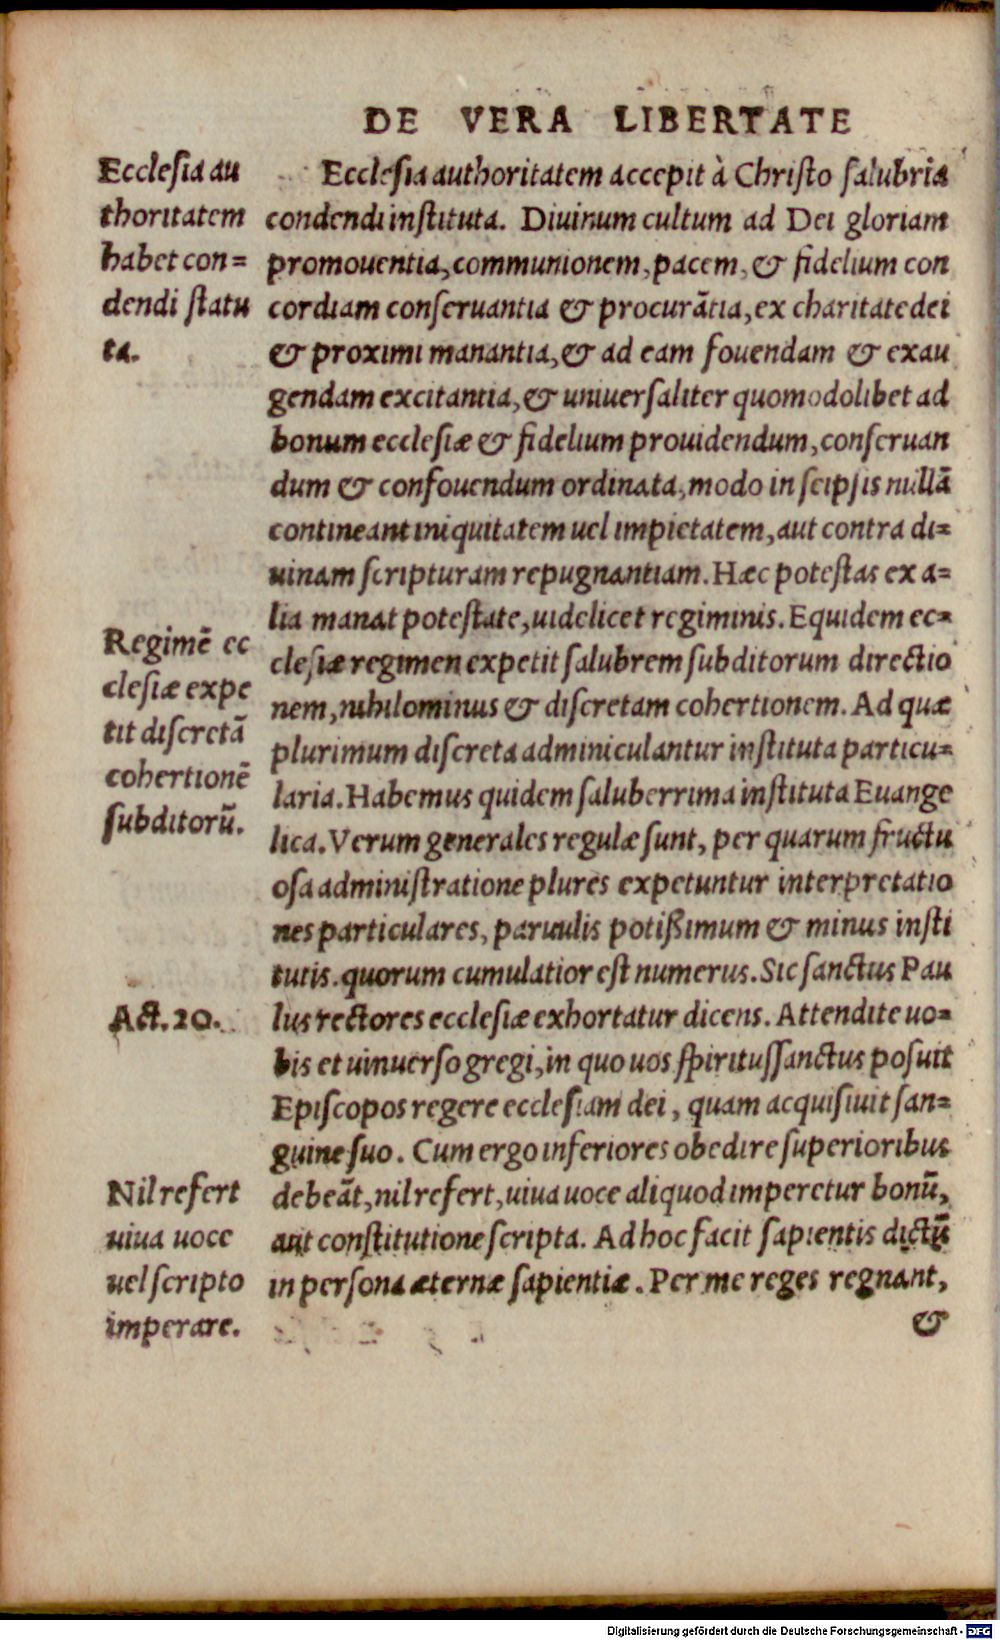 DE VERA LIBERTATE
Ecclesia au
thoritatem
habet con=
dendi statu
ta.
Ecclesia authoritatem accepit à Christo salubria
condendi instituta. Diuinum cultum ad Dei gloriam
promouentia, communionem, pacem, & fidelium con
cordiam conseruantia & procurātia, ex charitate dei
& proximi manantia, & ad eam fouendam & exau
gendam excitantia, & uniuersaliter quomodolibet ad
bonum ecclesiæ & fidelium prouidendum, conseruan
dum & confouendum ordinata, modo in seipsis nullā
contineant iniquitatem uel impietatem, aut contra di=
uinam scripturam repugnantiam. Hæc potestas ex a=
lia manat potestate, uidelicet regiminis. Equidem ec=
clesiæ regimen expetit salubrem subditorum directio
nem, nihilominus & discretam cohertionem. Ad quæ
plurimum discreta adminiculantur instituta particu=
laria. Habemus quidem saluberrima instituta Euange
lica. Verum generales regulæ sunt, per quarum fructu
osa administratione plures expetuntur interpretatio
nes particulares, paruulis potißimum & minus insti
tutis. quorum cumulatior est numerus. Sic sanctus Pau
lus rectores ecclesiæ exhortatur dicens. Attendite uo=
bis et uinuerso gregi, in quo uos spiritussanctus posuit
Episcopos regere ecclesiam dei, quam acquisiuit san=
guine suo. Cum ergo inferiores obedire superioribus
debeāt, nil refert, uiua uoce aliquod imperetur bonū,
aut constitutione scripta. Ad hoc facit sapientis dictū
in persona æternæ sapientiæ. Per me reges regnant,
&
Regimē ec
clesiæ expe
tit discretā
cohertionē
subditorū.
Act. 20.
Nil refert
uiua uoce
uel scripto
imperare.
Digitalisierung gefördert durch die Deutsche Forschungsgemeinschaft - DFG